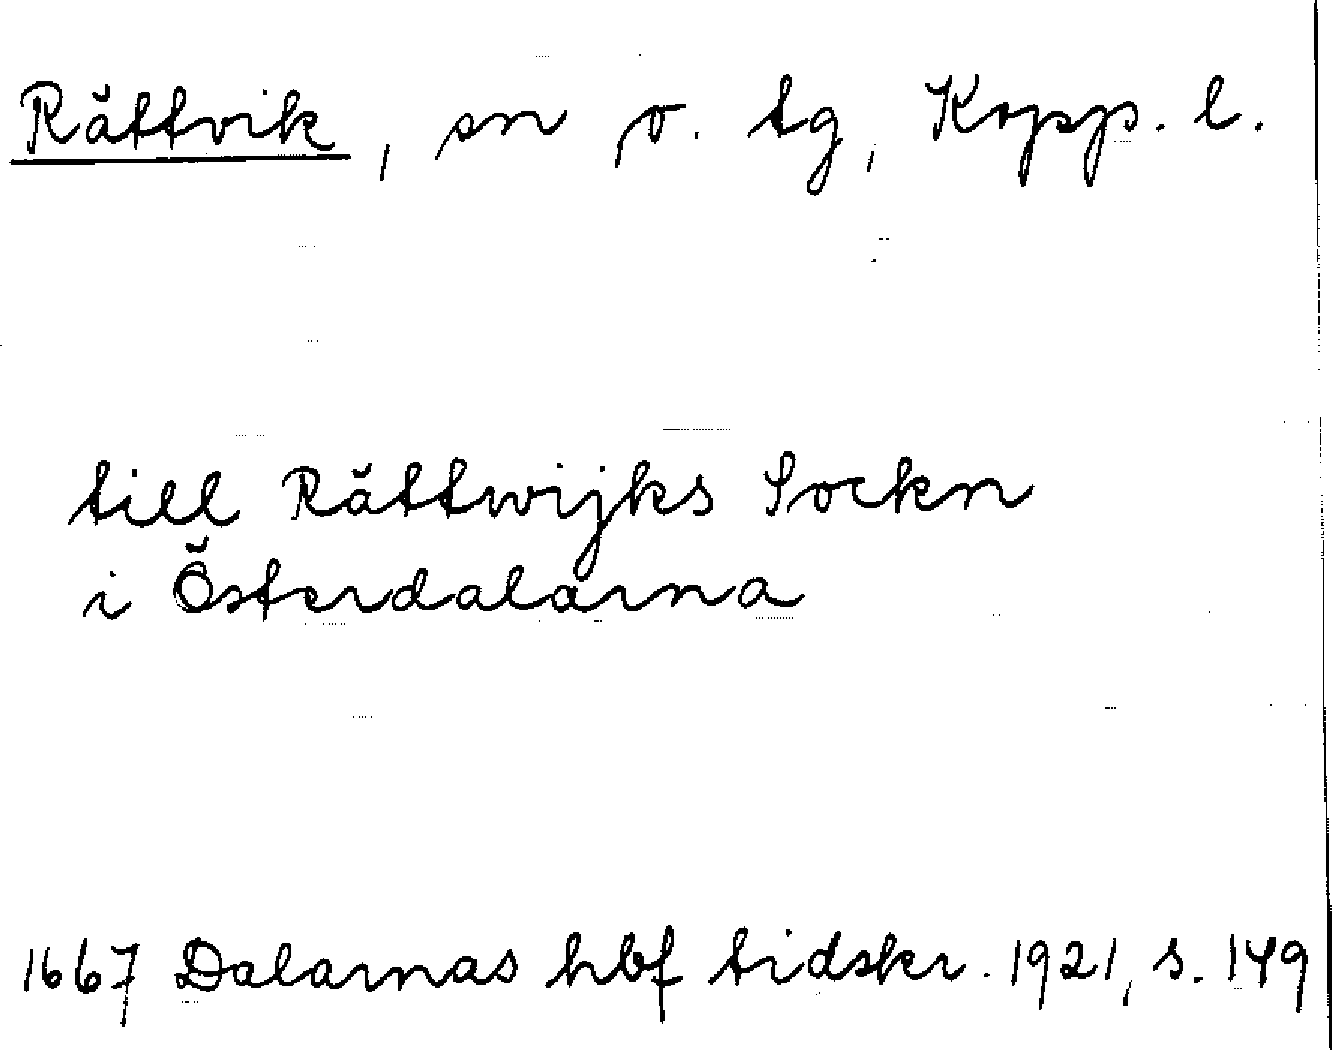 Rättvik, sn o. tg, Kopp. l.
till Rättwijks Sockn
i Österdalarna
1667 Dalarnas hbf tidskr. 1921, s. 149